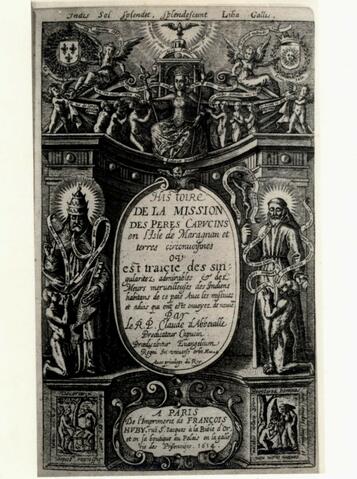 Indis Sol Splendet, Splendescunt Lilia Gallis.
HISTOIRE
DE LA MISSION
DES PERES CAPVCINS
en l'Isle de Maragnan et
terres circonuoisines
OV
est traicte des sin-
gularitez admirables & des
Meurs merueilleuses des Indiens
habitans de ce pais Auec les missiues
et aduis qui ont este enuoyez de nouueau
Par
Le R. P. Claude d'Abbeuille
Predicateur Capucin.
Prædicabitur Euangelium
Regni in vniuerso orbe
Auec priuilege du Roy
A PARIS
De l'Imprimerie de FRANÇOIS
HVBY, ruë St. Iacques à la Bible d'Or,
et en sa boutique au Palais en la galle
rie des Prisonniers. 1614.